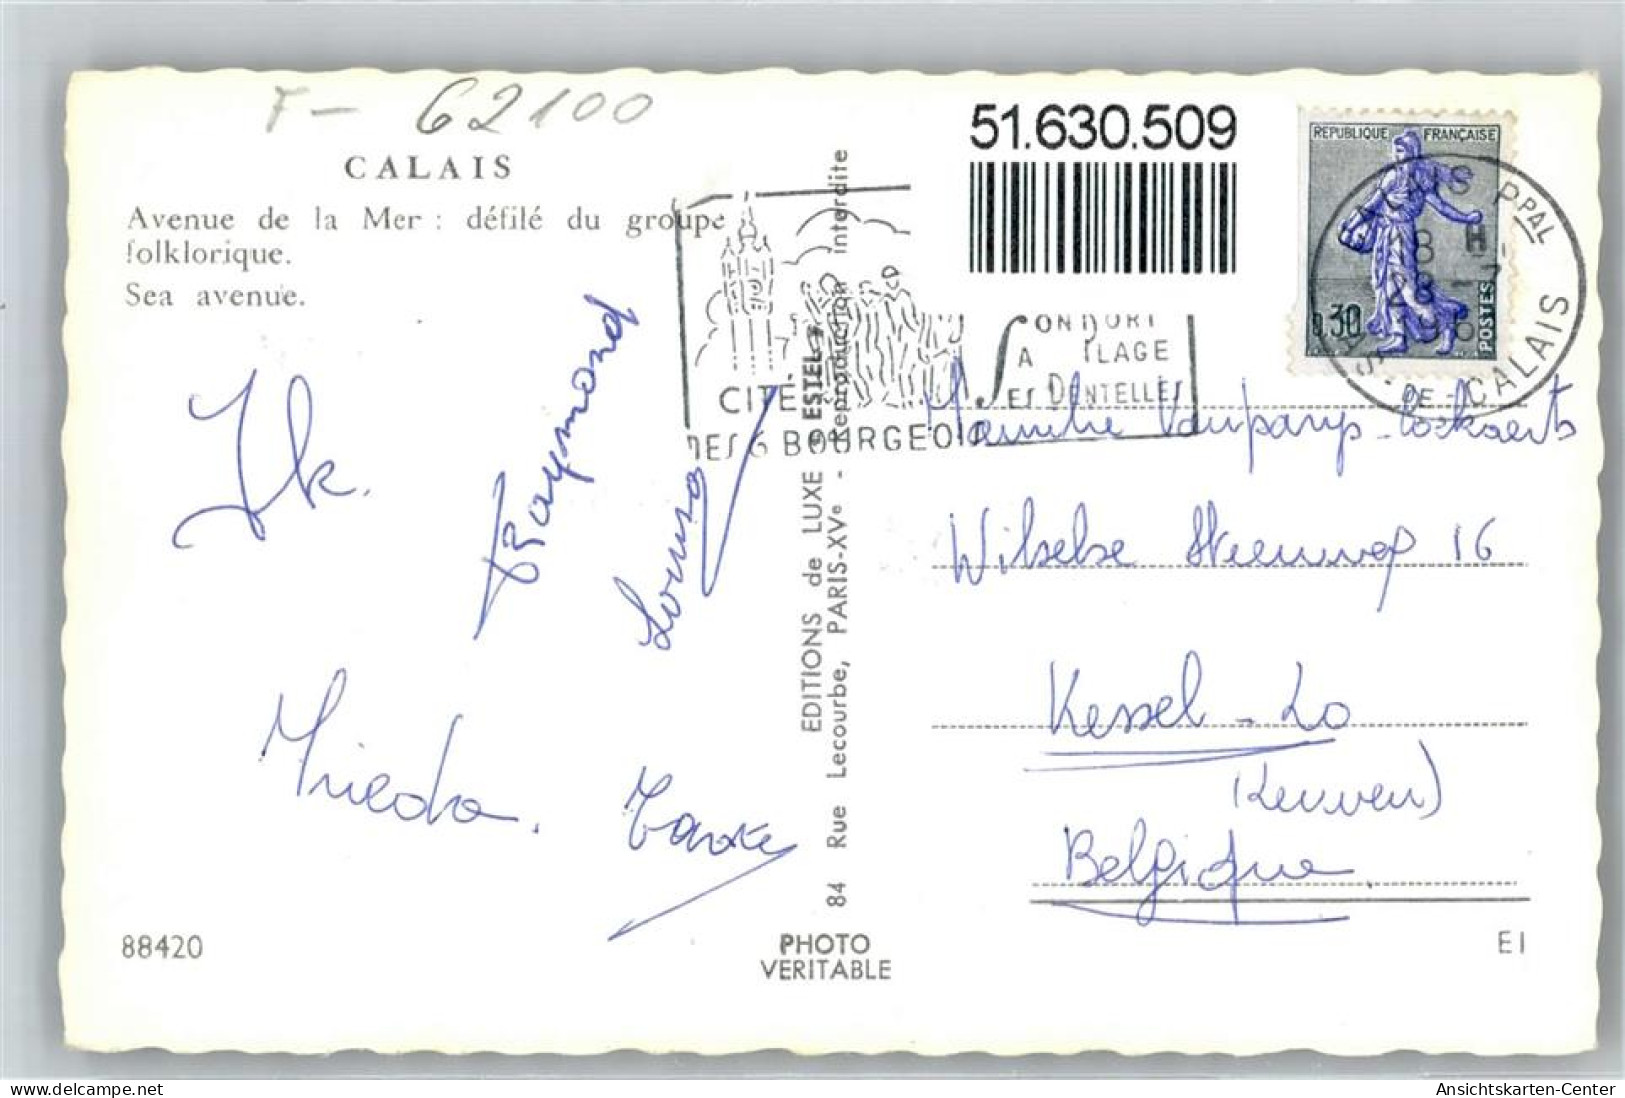 F - 62100
CALAIS
Avenue de la Mer : défilé du groupe
folklorique.
Sea avenue.
51.630.509
REPUBLIQUE FRANÇAISE
0,30
POSTES
CALAIS PPAL
18 H
28 - 7
196
PAS - DE - CALAIS
CITÉ
DES 6 BOURGEOIS
SON PORT
SA PLAGE
SES DENTELLES
Ik.
Raymond
Louisa
Frieda.
EDITIONS de LUXE « ESTEL »
84 Rue Lecourbe, PARIS-XVe - Reproduction interdite
Familie
16
Kessel-Lo
(Leuven)
Belgique
88420
PHOTO
VERITABLE
E I
Ansichtskarten-Center